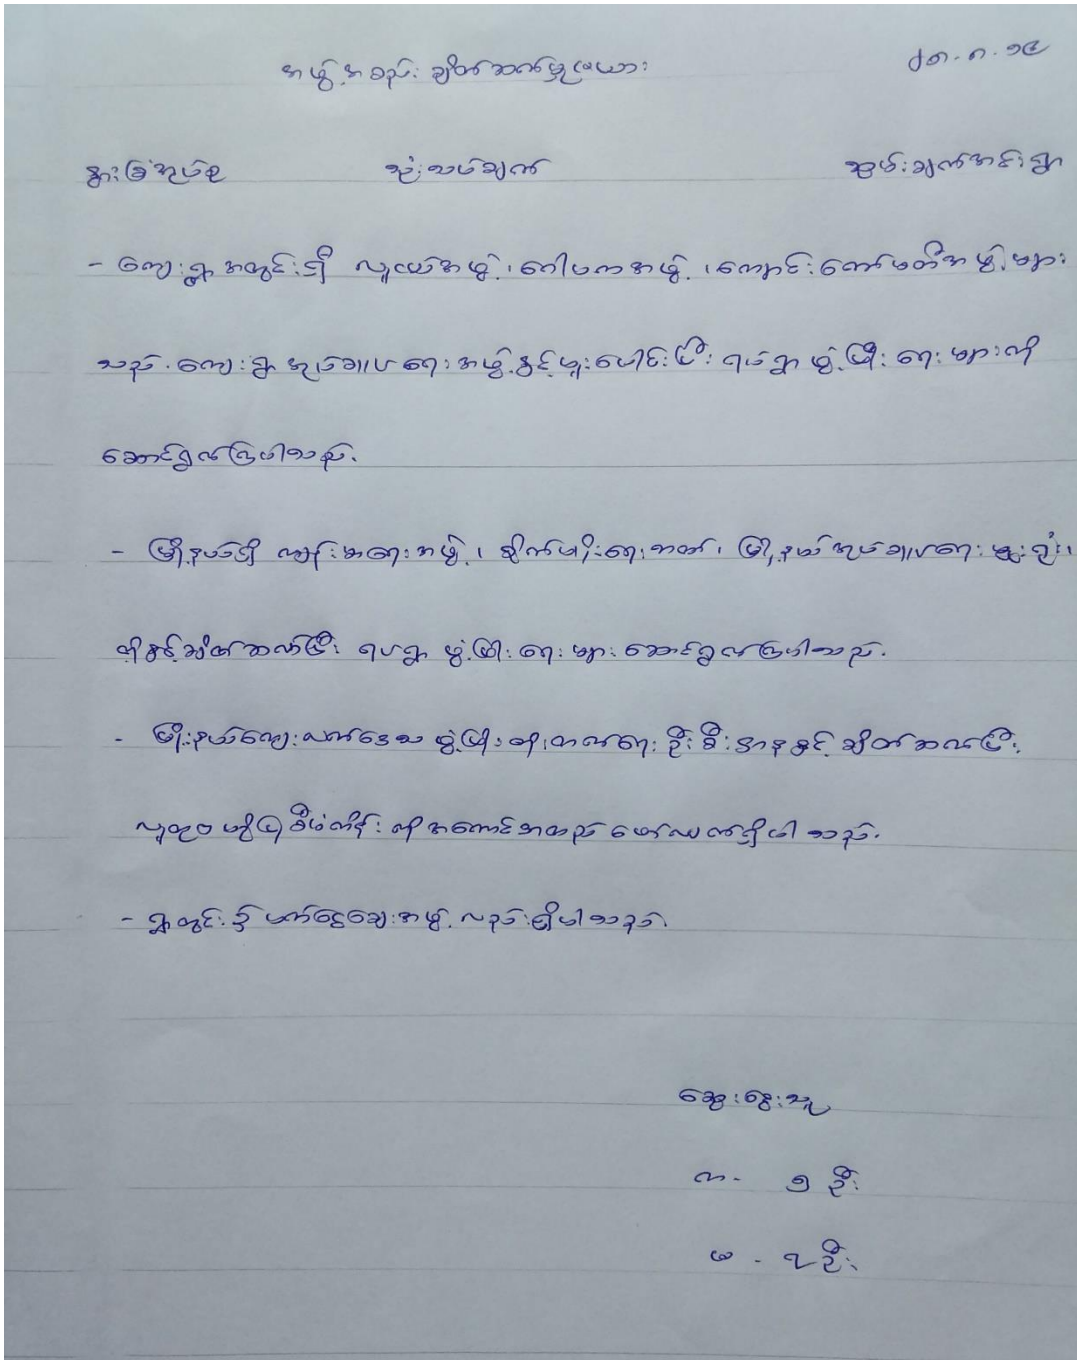 အဖွဲ့အစည်းချိတ်ဆက်မှုဇယား ၂၈.၈.၁၄
နွားခြံအုပ်စု သုံးသပ်ချက် ဆွမ်းချက်အင်းရွာ
- ကျေးရွာအတွင်းရှိ လူငယ်အဖွဲ့၊ ဂေါပကအဖွဲ့၊ ကျောင်းကော်မတီအဖွဲ့များ
သည် ကျေးရွာအုပ်ချုပ်ရေးအဖွဲ့နှင့်ပူးပေါင်းပြီး ရပ်ရွာဖွံ့ဖြိုးရေးများကို
ဆောင်ရွက်ကြပါသည်.
- မြို့နယ်ရှိ ကျန်းမာရေးအဖွဲ့၊ စိုက်ပျိုးရေးဘဏ်၊ မြို့နယ်အုပ်ချုပ်ရေးမှူးရုံး၊
တို့နှင့်ချိတ်ဆက်ပြီး ရပ်ရွာ ဖွံ့ဖြိုးရေးများဆောင်ရွက်ကြပါသည်.
- မြို့နယ်ကျေးလက်ဒေသ ဖွံ့ဖြိုးတိုးတက်ရေးဦးစီးဌာနနှင့် ချိတ်ဆက်ပြီး
လူထုဗဟိုပြုစီမံကိန်းကိုအကောင်အထည် ဖော်လျက်ရှိပါသည်.
- ရွာတွင်း၌ မတ်ငွေချေးအဖွဲ့လည်းရှိပါသည်.
ဆွေးနွေးသူ
က - ၅ ဦး
မ - ၎ဦး